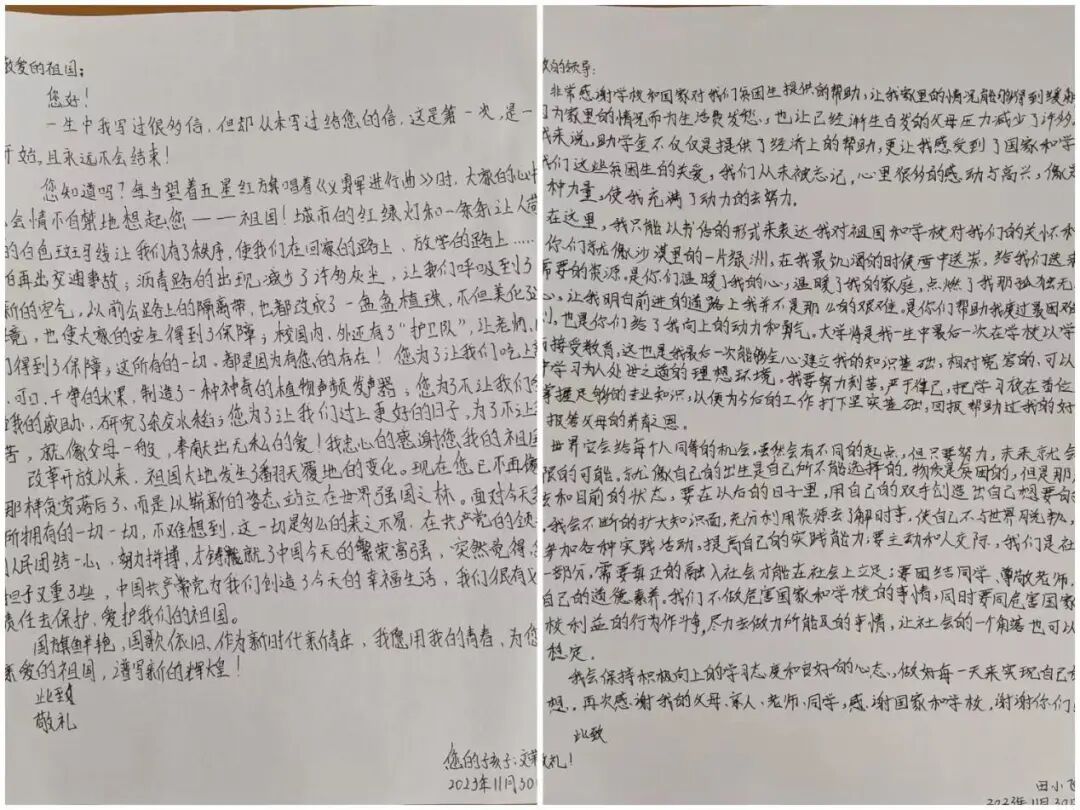 敬爱的祖国：
您好！
一生中我写过很多信，但却从未写过给您的信，这是第一次，是一
开始，且永远不会结束！
您知道吗？每当望着五星红旗唱着《义勇军进行曲》时，大家的心中
会情不自禁地想起您——祖国！城市的红绿灯和一条条让人
的白色斑马线让我们有了秩序，使我们在回家的路上、放学的路上……
再出交通事故；沥青路的出现，减少了许多灰尘，让我们呼吸到了
新的空气，从前公路上的隔离带，也都改成了一盆盆植珠，不但美化
境，也使大家的安全得到了保障；校园内、外还有了“护卫队”，让老师、
们得到了保障；这所有的一切，都是因为有您的存在！您为了让我们吃上
可口、干净的水果，制造了一种神奇的植物声频发声器；您为了不让我们
的威胁，研究了杂交水稻；您为了让我们过上更好的日子，为了不让
苦，就像父母一般，奉献出无私的爱！我忠心的感谢您我的祖国
改革开放以来，祖国大地发生了翻天覆地的变化。现在您已不再像
那样贫穷落后了，而是以崭新的姿态站立在世界强国之林。面对今天
所拥有的一切一切，不难想到，这一切是多么的来之不易。在共产党的领
人民团结一心，努力拼搏，才铸就了中国今天的繁荣富强，突然觉得
担子又重了些，中国共产党为我们创造了今天的幸福生活，我们很有
责任去保护、爱护我们的祖国。
国旗鲜艳，国歌依旧，作为新时代新青年，我愿用我的青春，为您
亲爱的祖国，谱写新的辉煌！
此致
敬礼
您的孩子：文
2023年11月30
的领导：
非常感谢学校和国家对我们贫困生提供的帮助，让我家里的情况能够得到缓
因为家里的情况而为生活费发愁，也让已经渐生白发的父母压力减少了许多
我来说，助学金不仅仅是提供了经济上的帮助，更让我感受到了国家和学
我们这些贫困生的关爱，我们从未被忘记，心里很多的感动与高兴，像
种力量，使我充满了动力的去努力。
在这里，我只能以书信的形式来表达我对祖国和学校对我们的关怀和
你们就像沙漠里的一片绿洲，在我最饥渴的时候雪中送炭，给我们送来
需要的资源。是你们温暖了我的心，温暖了我的家庭，点燃了我那孤独无
心，让我明白前进的道路上我并不是那么的艰难，是你们帮助我度过最困难
刻，也是你们给了我向上的动力和勇气。大学将是我一生中最后一次在学校以学
接受教育，这也是我最后一次能够全心建立我的知识基础，相对宽容的，可以
中学习为人处世之道的理想环境，我要努力刻苦，严于律己，把学习放在首位
掌握足够的专业知识，以便为今后的工作打下坚实基础，回报帮助过我的好
报答父母的养育之恩。
世界它会给每个人同等的机会，虽然会有不同的起点，但只要努力，未来就会
限的可能，就像自己的出生是自己所不能选择的，物质是贫困的，但是那
和目前的状态，要在以后的日子里，用自己的双手创造出自己想要的
我会不断的扩大知识面，充分利用资源去了解时事，使自己不与世界脱轨，
参加各种实践活动，提高自己的实践能力；要主动和人交际，我们是社
一部分，需要真正的融入社会才能在社会上立足；要团结同学、尊敬老师，
自己的道德素养。我们不做危害国家和学校的事情，同时要同危害国家
校利益的行为作斗争，尽力去做力所能及的事情，让社会的一个角落也可以
稳定。
我会保持积极向上的学习态度和良好的心态，做好每一天来实现自己
想。再次感谢我的父母、家人、老师、同学，感谢国家和学校，谢谢你们
此致
礼！
田小飞
2023年11月30日